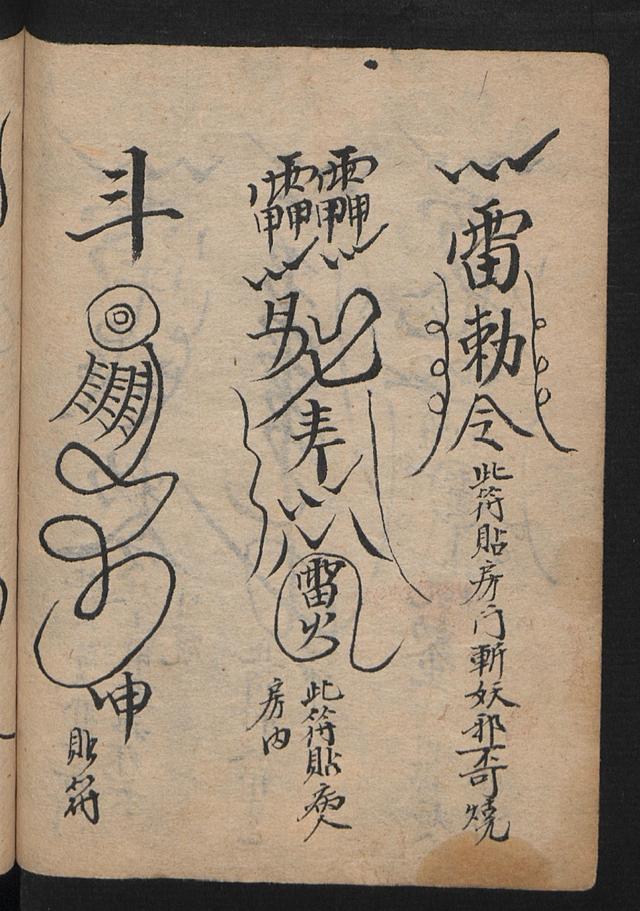 雷勅令
此符貼房门斬妖邪奇燒
雷火
此符貼病人
房内
斗
申
貼符